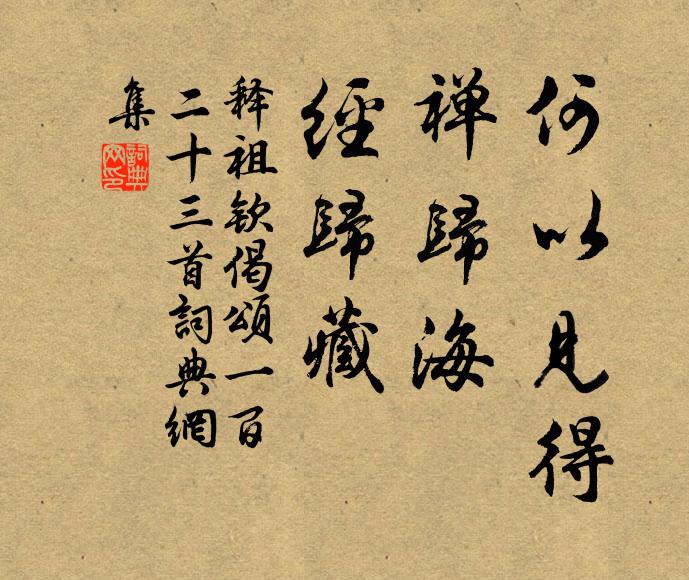 何以見得
禅歸海
經歸藏
释祖钦偈頌一百
二十三首詞典網
集
詞典
网印